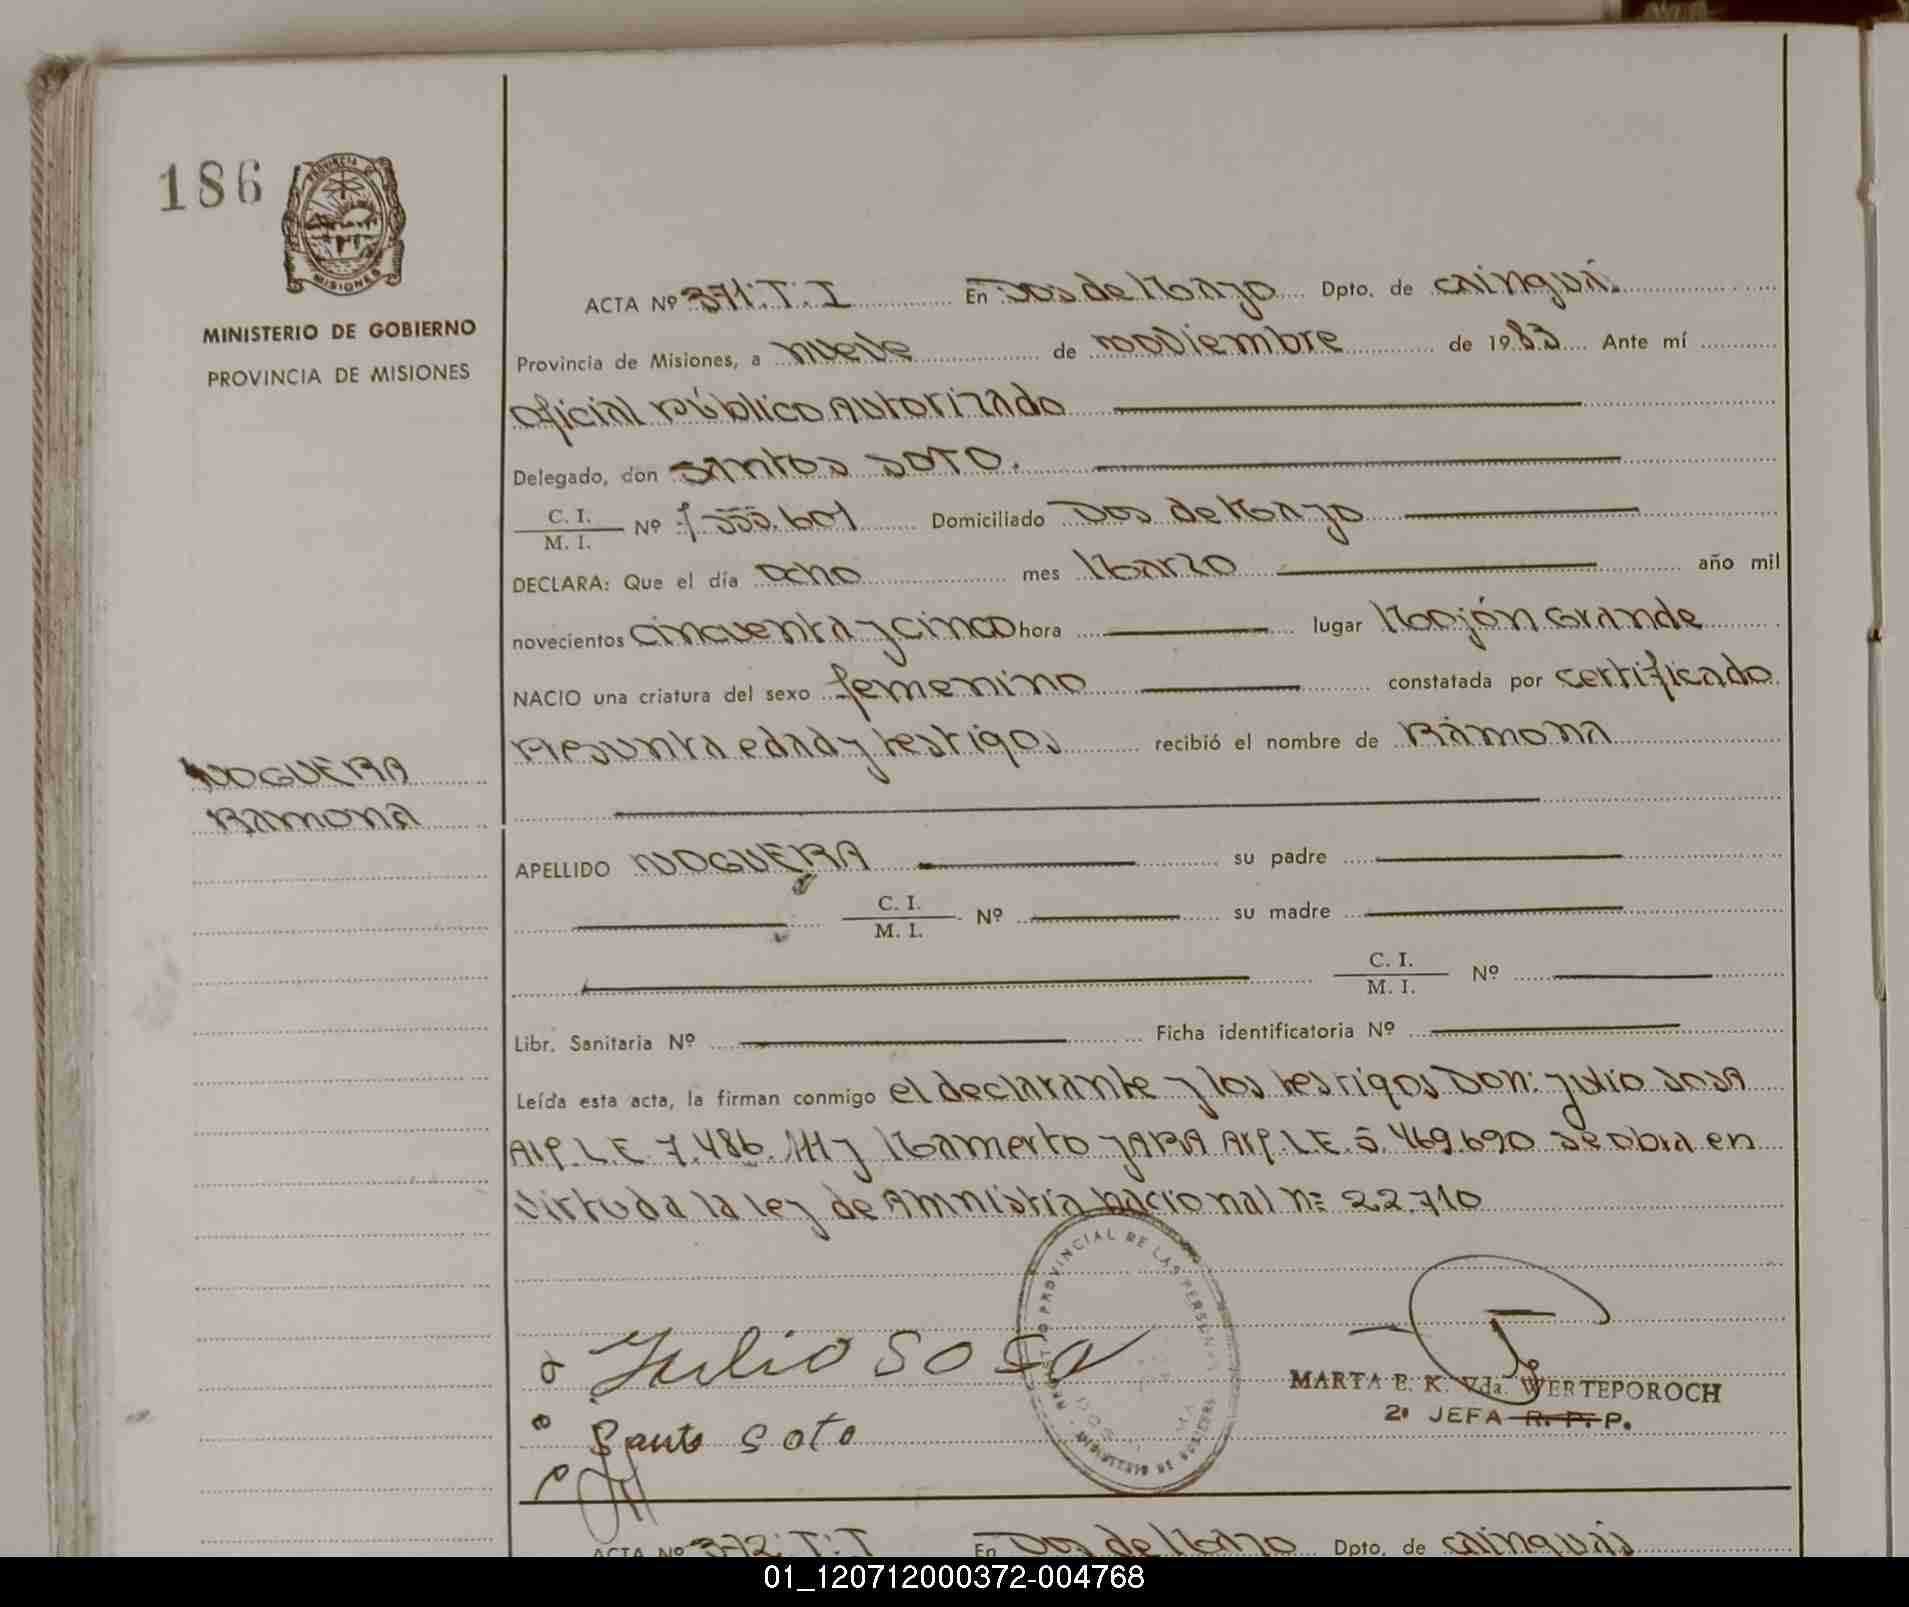 186
PROVINCIA DE
MISIONES
MINISTERIO DE GOBIERNO
PROVINCIA DE MISIONES
ACTA Nº 371. T. I En Dos de Marzo Dpto. de Cainguá.
Provincia de Misiones, a nueve de noviembre de 1983 Ante mí
Oficial Público Autorizado
Delegado, don Santos Soto.
C. I. / M. I. Nº 7.555.601 Domiciliado Dos de Marzo
DECLARA: Que el día ocho mes Marzo año mil
novecientos cincuenta y cinco hora lugar Mojón Grande
NACIO una criatura del sexo femenino constatada por certificado
presunta edad y testigos recibió el nombre de Ramona
NOGUEIRA
Ramona
APELLIDO NOGUEIRA su padre
C. I. / M. I. Nº su madre
C. I. / M. I. Nº
Libr. Sanitaria Nº Ficha identificatoria Nº
Leída esta acta, la firman conmigo el declarante y los testigos Don: Julio Sosa
Arg. L.E. 7.486. y Mamerto JARA Arg. L.E. 5.469.690 se obra en
virtud a la ley de Amnistía nacional nº 22.710
REGISTRO PROVINCIAL DE LAS PERSONAS
Julio Sosa
Santo Soto
MARTA E. K. Vda. WERTEPOROCH
2º JEFA R. P. P.
ACTA Nº 372. T. I En Dos de Marzo Dpto. de Cainguás
01_120712000372-004768